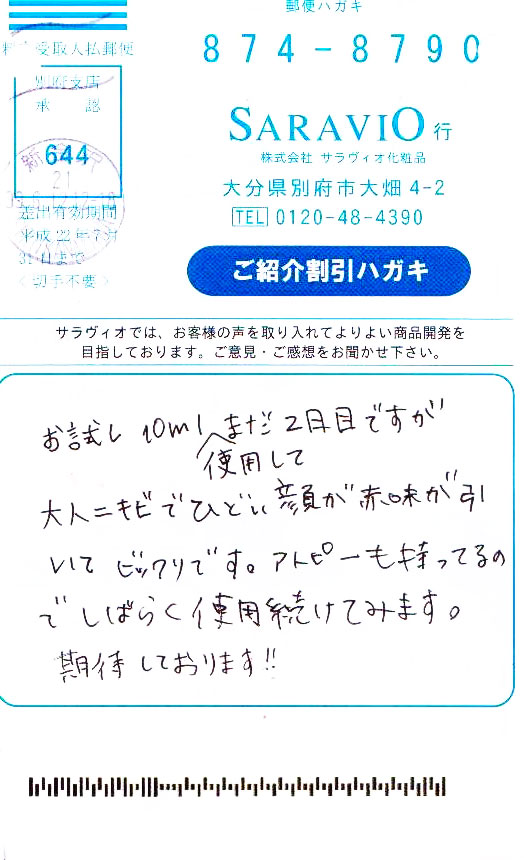 郵便ハガキ
874-8790
料金受取人払郵便
別府支店
承認
644
差出有効期間
平成22年7月
31日まで
〈切手不要〉
SARAVIO行
株式会社 サラヴィオ化粧品
大分県別府市大畑4-2
TEL 0120-48-4390
ご紹介割引ハガキ
サラヴィオでは、お客様の声を取り入れてよりよい商品開発を
目指しております。ご意見・ご感想をお聞かせ下さい。
お試し10ml まだ2日目ですが
使用して
大人ニキビでひどい顔が赤味が引
いてビックリです。アトピーも持ってるの
でしばらく使用続けてみます。
期待しております!!